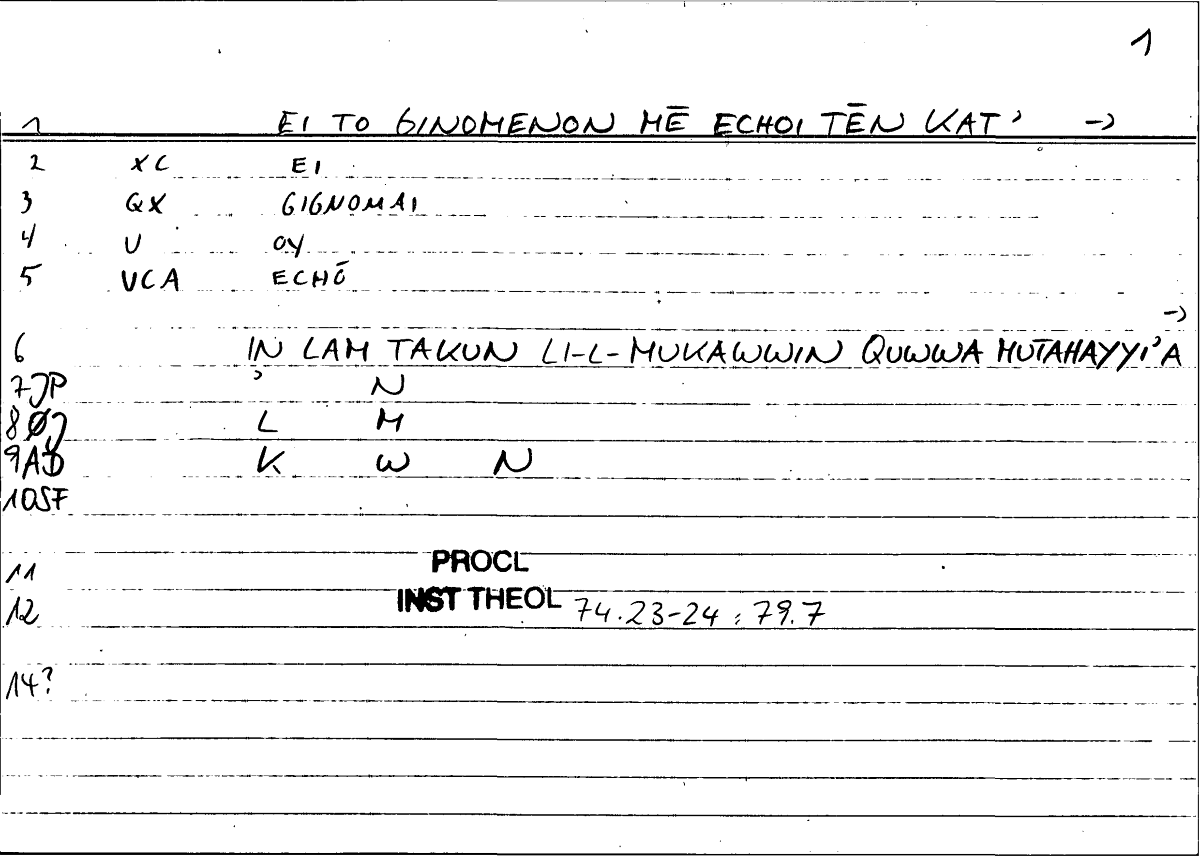 1
1 EI TO GINOMENON MĒ ECHOI TĒN KAT' ->
2 XC EI
3 QX GIGNOMAI
4 U OY
5 VCA ECHŌ
->
6 IN LAM TAKUN LI-L-MUKAWWIN QUWWA MUTAHAYYI'A
7 JP ' N
8 ØJ L M
9 AD K W N
10 SF
11 PROCL
12 INST THEOL 74.23-24 : 79.7
14?